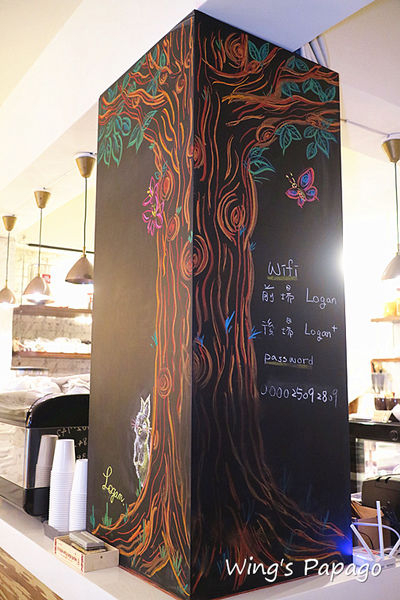 wifi
前場 Logan
後場 Logan+
password
0000 2509 2809
Logan.
Wing's Papago